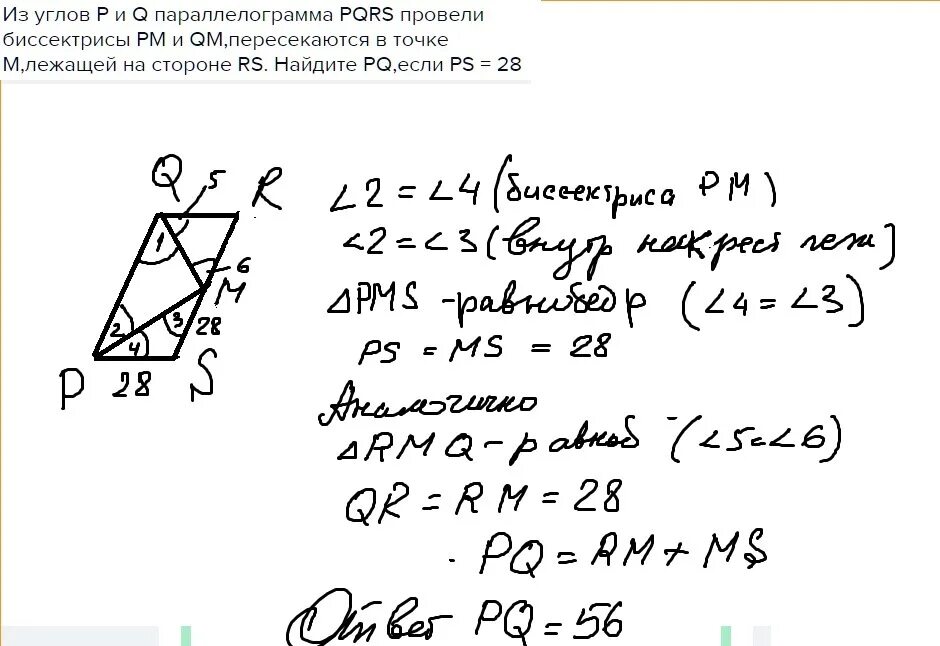 Из углов P и Q параллелограмма PQRS провели
биссектрисы PM и QM,пересекаются в точке
M,лежащей на стороне RS. Найдите PQ,если PS = 28
Q 5 R
1
6
M
2 3 28
4
P 28 S
∠2 = ∠4 (биссектриса PM)
∠2 = ∠3 (внутр накрест леж)
△PMS - равнобедр (∠4 = ∠3)
PS = MS = 28
Аналогично
△RMQ - равноб (∠5=∠6)
QR = RM = 28
PQ = RM + MS
Ответ PQ = 56